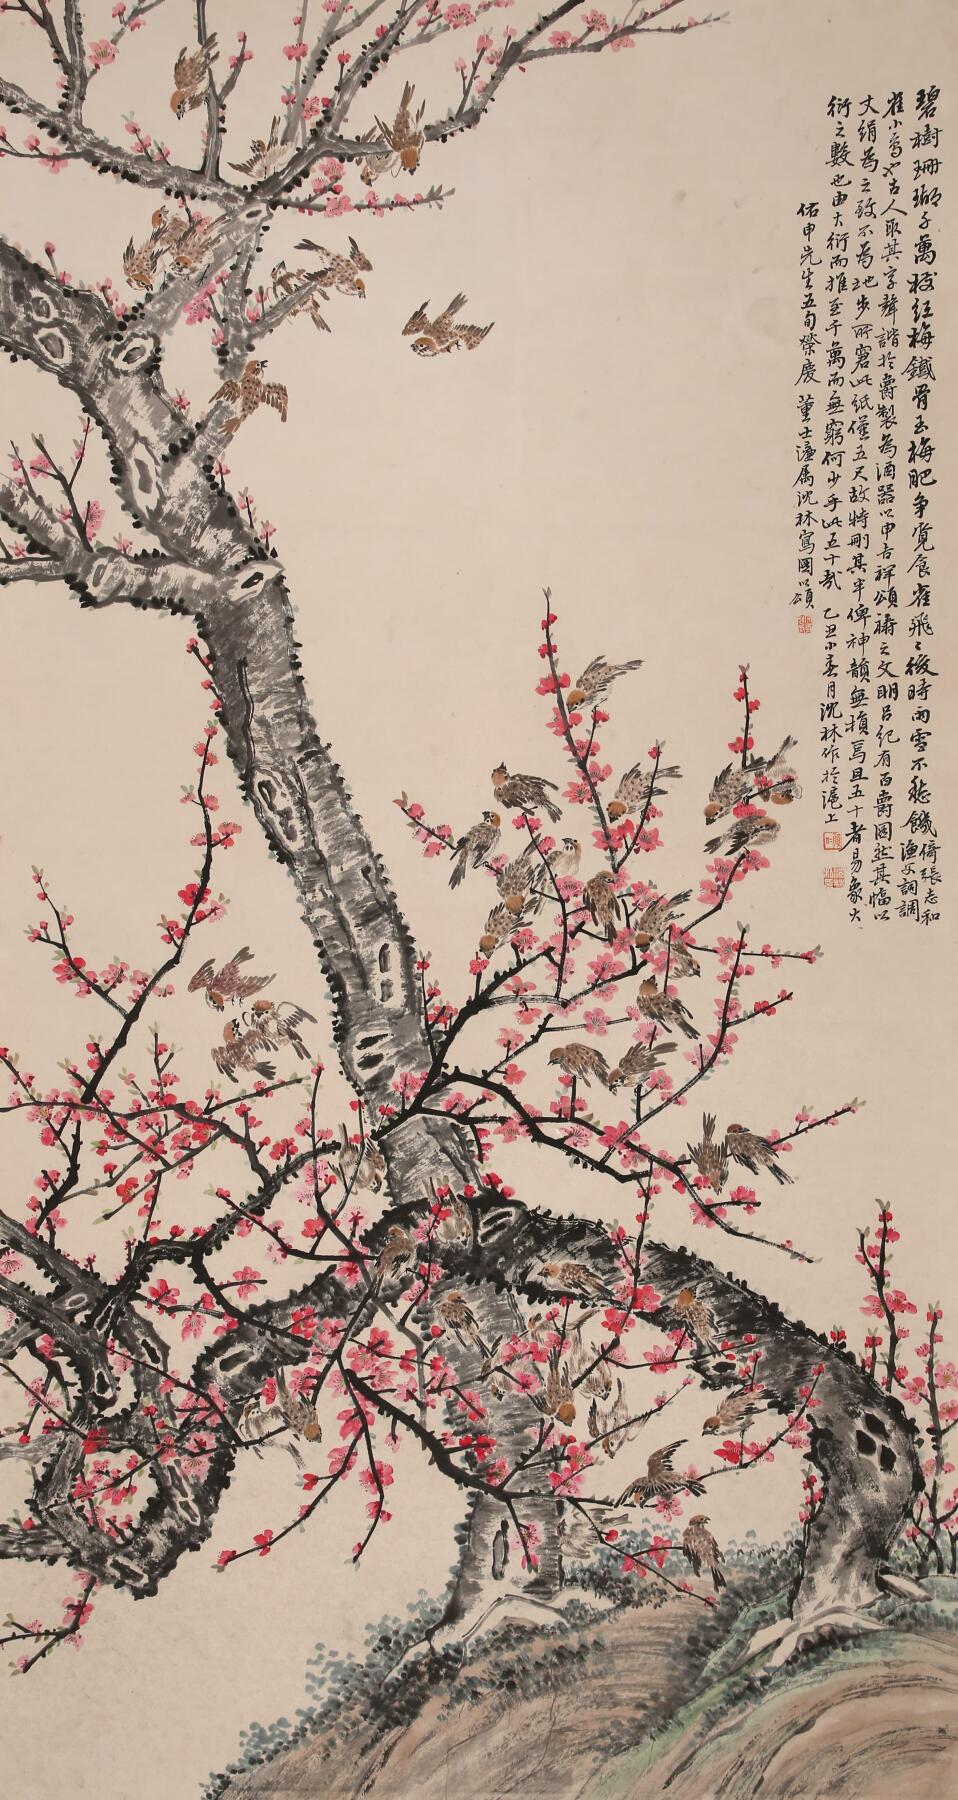 碧樹珊瑚子萬枝紅梅鐵骨玉梅肥爭覓食雀飛〻後時雨雪不愁饑倚張志和漁父詞調
雀小鳥也古人取其字聲諧於爵製為酒器以申吉祥頌禱之文明呂紀有百爵圖然其幅以
丈絹為之致不為地步所窘此紙僅五尺故特刪其半俾神韻無損焉且五十者易象大
衍之數也由大衍而推至千萬而無窮何少乎此五十哉 乙丑小春月沈林作於滬上
佑申先生五旬榮慶 董士濂屬沈林寫圖以頌